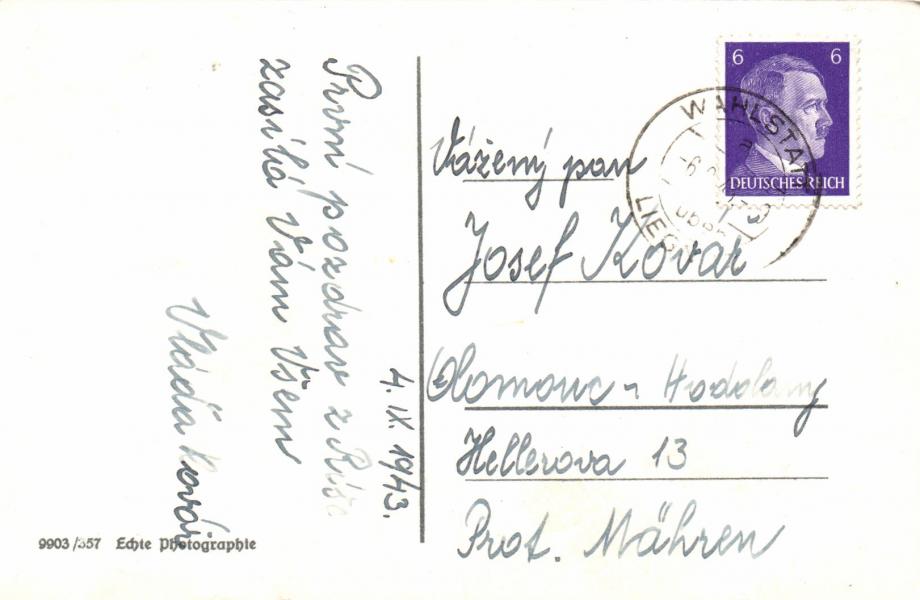 První pozdrav z Říše
zasílá Vám Všem
Vláďa Kovář
4. IX. 1943.
6 6
DEUTSCHES REICH
WAHLSTATT
Vážený pan
Josef Kovář
Olomouc - Hodolany
Hellerova 13
Prot. Mähren
9903/357 Echte Photographie